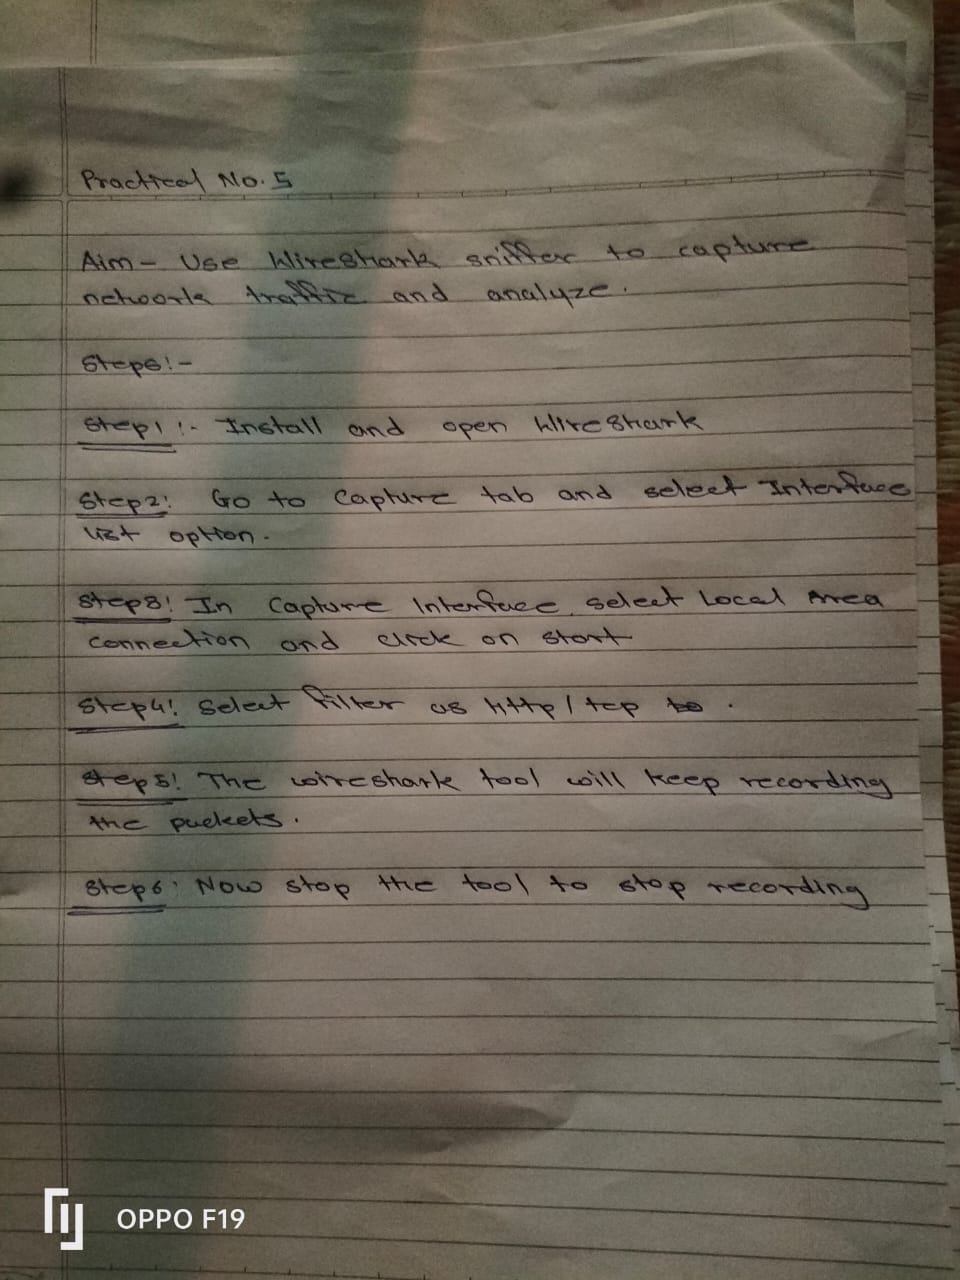 Practical No. 5
Aim - Use Wireshark sniffer to capture
network traffic and analyze.
Steps:-
Step1:- Install and open WireShark
Step2: Go to Capture tab and select Interface
list option.
Step3: In Capture Interface, select Local Area
connection and click on start
Step4: Select filter as http/tcp to .
Step5: The wireshark tool will keep recording
the packets.
Step6: Now stop the tool to stop recording
OPPO F19